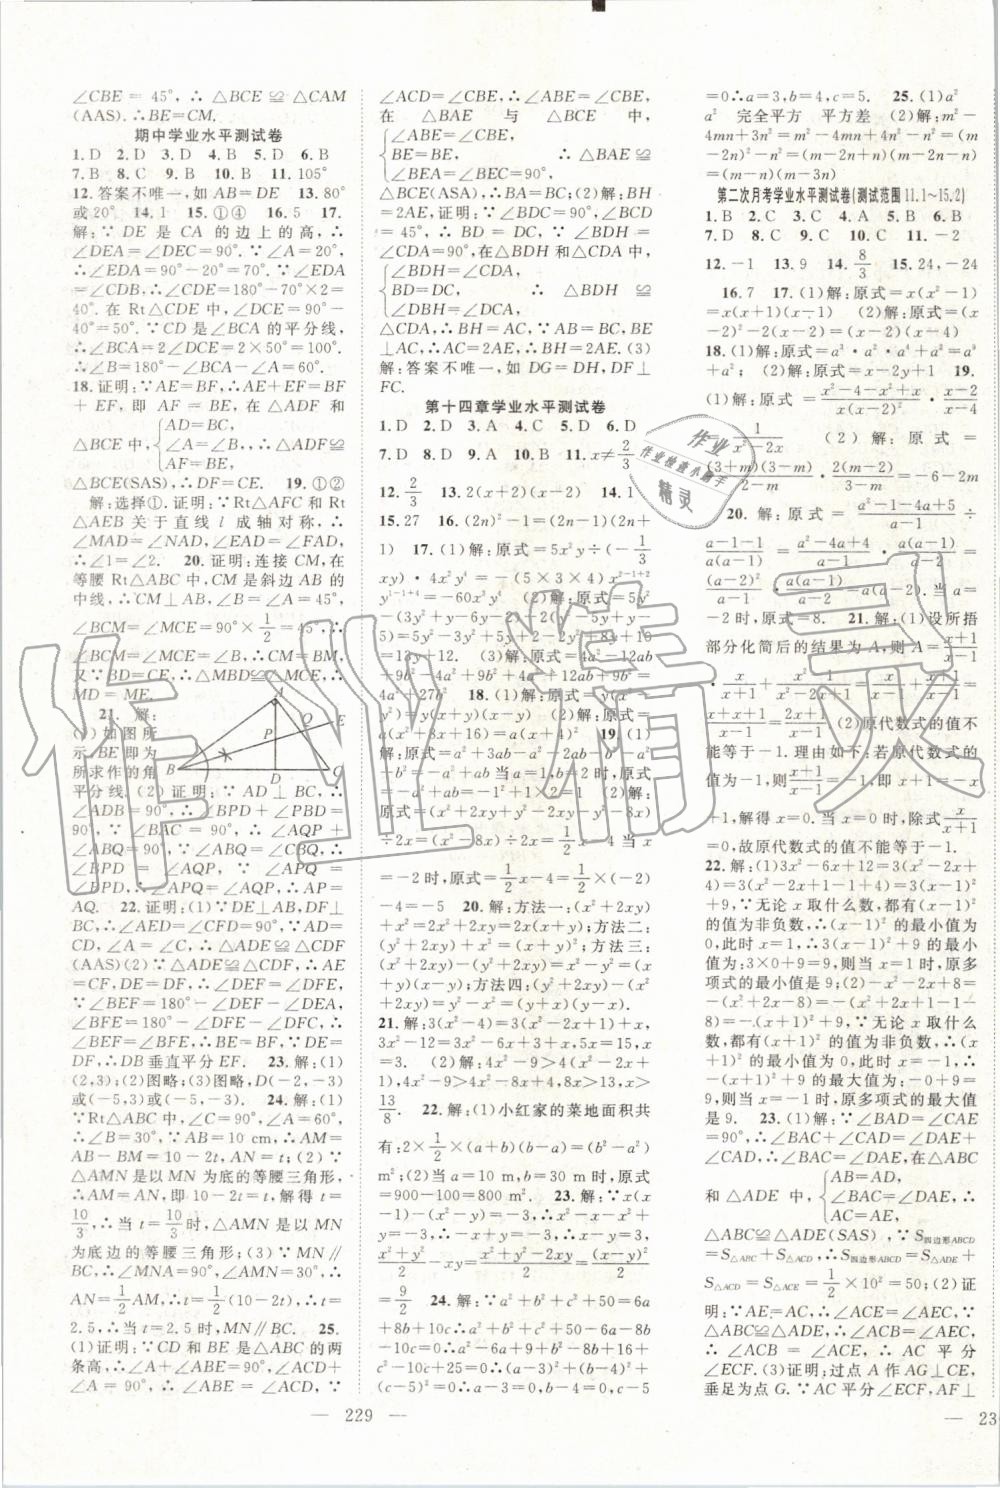 ∠CBE = 45°,∴ △BCE ≌ △CAM
(AAS).∴BE=CM.
期中学业水平测试卷
1.D 2.D 3.D 4.B 5.D 6.B
7.B 8.C 9.B 10.B 11.105°
12.答案不唯一,如 AB=DE 13.80°
或20° 14.1 15.①④ 16.5 17.
解:∵ DE 是 CA 的边上的高,∴
∠DEA=∠DEC=90°. ∵∠A=20°,
∴∠EDA=90°-20°=70°. ∵∠EDA
=∠CDB,∴∠CDE=180°-70°×2=
40°.在 Rt△CDE 中,∠DCE=90°-
40°=50°.∵CD 是∠BCA 的平分线,
∴∠BCA=2∠DCE=2×50°=100°.
∴∠B=180°-∠BCA-∠A=60°.
18.证明:∵AE=BF,∴AE+EF=BF
+EF,即 AF=BE.在△ADF 和
△BCE 中,{AD=BC, ∠A=∠B, AF=BE, ∴△ADF≌
△BCE(SAS),∴DF=CE. 19.①②
解:选择①.证明:∵Rt△AFC 和 Rt
△AEB 关于直线 l 成轴对称,∴
∠MAD=∠NAD,∠EAD=∠FAD,
∴∠1=∠2. 20.证明:连接 CM,在
等腰 Rt△ABC 中,CM 是斜边 AB 的
中线,∴CM⊥AB,∠B=∠A=45°,
∠BCM=∠MCE=90°×1/2=45°,∴
∠BCM=∠MCE=∠B,∴CM=BM,
又∵BD=CE,∴△MBD≌△MCE,∴
MD=ME.
21.解:
(1)如图所
示 BE 即为
所求作的角
平分线.(2)证明:∵ AD⊥BC,∴
∠ADB=90°,∴∠BPD+∠PBD=
90°,∵∠BAC=90°,∴∠AQP+
∠ABQ=90°.∵∠ABQ=
∠PBD,∴∠BPD=∠AQP,∵∠APQ=
∠BPD,∴∠APQ=∠AQP,∴AP=
AQ. 22.证明:(1)∵DE⊥AB,DF⊥
BC,∴∠AED=∠CFD=90°,∵D 为
AC 中点,∴AD=DC.∵AB=
BC,∴∠A=∠C,∴△ADE≌△CDF
(AAS)(2)∵△ADE≌△CDF,∴AE
=CF,DE=DF,∴∠DEF=∠DFE,
∵∠BEF=180°-∠DEF-∠DEA,
∠BFE=180°-∠DFE-∠DFC,∴
∠BEF=∠BFE,∴BE=BF.∵DE=
DF,∴DB 垂直平分 EF. 23.解:(1)
(2,3);(2)图略;(3)图略,D(-2,-3)
或(-5,3)或(-5,-3). 24.解:(1)
∵Rt△ABC 中,∠C=90°,∠A=60°,
∴∠B=30°.∵AB=10 cm,∴AM=
AB-BM=10-2t,AN=t;(2)∵
△AMN 是以 MN 为底的等腰三角形,
∴AM=AN,即 10-2t=t,解得 t=
10/3,∴当 t=10/3 时,△AMN 是以 MN
为底边的等腰三角形;(3)∵MN∥
BC,∴∠MNA=90°,∠AMN=30°,
∴AN=1/2AM,∴t=1/2(10-2t),∴t=
2.5,∴当 t=2.5 时,MN∥BC. 25.
(1)证明:∵CD 和 BE 是△ABC 的两
条高,∴∠ACE+∠ABE=∠ACD+
∠A=90°,∴∠ABE=∠ACD,∵
∠ACD=∠CBE,∴∠ABE=∠CBE,
在△BAE 与△BCE 中,
{∠ABE=∠CBE, BE=BE, ∠BEA=∠BEC, ∴△BAE≌
△BCE(ASA),∴BA=BC;(2)解:BH
=2AE,证明:∵∠BDC=90°,∠BCD
=45°,∴ BD=DC,∵∠BDH=
∠CDA=90°,在△BDH 和△CDA 中,
{∠BDH=∠CDA, BD=DC, ∠DBH=∠DCA, ∴△BDH≌
△CDA,∴BH=AC,∵AB=BC,BE
⊥AC,∴AC=2AE,∴BH=2AE.(3)
解:答案不唯一,如 DG=DH,DF⊥
FC.
第十四章学业水平测试卷
1.D 2.D 3.A 4.C 5.D 6.D
7.D 8.D 9.A 10.B 11.x≠2/3
12.2/3 13.2(x+2)(x-2) 14.1
15.27 16.(2n)²-1=(2n-1)(2n+
1) 17.(1)解:原式=5x²y÷(-1/3
xy)·4x²y⁴=-(5×3×4)x²⁻¹⁺²
y¹⁻¹⁺⁴=-60x³y⁴
+10=
13y+12.
-9b²
4a²+27b² 18.(1)
(2)解:原式=
a(x²+8x+16)=a(x+4)² 19.(1)
-b²=-a²+ab 当 a=1,b=2 时,原式
÷2x=(x²-8x)÷2x=1/2x-4 当 x
=-2时,原式=1/2x-4=1/2×(-2)
-4=-5 20.解:方法一:(x²+2xy)
+x²=2x²+2xy=2x(x+y);方法二:
方法三:
(x²+2xy)-(y²+2xy)=x²-y²=(x+
y)(x-y);方法四:(y²+2xy)-(x²+
2xy)=y²-x²=(y+x)(y-x).
21.解:3(x²-4)=3x(x+1)+x,
3x²-12=3x²+3x+x,
x=3. (2)解:4x²-9>4(x²-
4x²-9>4x²
13/8 22.解:(1)小红家的菜地面积共
有:2×1/2×(a+b)(b-a)=(b²-a²)
m²;(2)当 a=10 m,b=30 m 时,原式
=900-100=800 m². 23.解:∵x(x
-1)-(x²-y)=-3,∴x²-x-x²+y
=-3,
(x²+y²)/2-xy=(x²+y²-2xy)/2=(x-y)²/2
=9/2 24.解:∵a²+b²+c²=6a
+8b+10c∴a²+b²+c²-6a-8b-
10c+50=0.
∴(a-3)²+(b-4)²
+(c-5)²=0,∴a-3=0,b-4=0,c-5
=0∴a=3,b=4,c=5. 25.(1)a²
a² 完全平方 平方差 (2)解:m²-
4mn+3n²=m²-4mn+4n²-n²=
(m-2n)²-n²=(m-2n+n)(m-2n-
n)=(m-n)(m-3n)
第二次月考学业水平测试卷(测试范围 11.1~15.2)
1.B 2.C 3.C 4.A 5.B 6.B
7.D 8.C 9.C 10.C 11.-2
12.-1 13.9 14.8/3 15.24,-24
16.7 17.(1)解:原式=x(x²-1)
=x(x+1)(x-1) (2)解:原式=(x-
2)²-2(x-2)=(x-2)(x-4)
18.(1)解:原式=a³·a⁶+a²=a⁹
+a² (2)解:原式=x-2y+1 19.
(1)解:原式=(x²-4-x²+x)/(x(x-2)²)·(x-2)/(x-4)
=1/(x²-2x) (2)解:原式=
(3+m)(3-m)/(m-2)·2(m-2)/(3-m)=-6-2m
20.解:原式=(a²-1-4a+5)/(a-1)÷
(a-1-1)/(a(a-1))=(a²-4a+4)/(a-1)·a(a-1)/(a-2)
=(a-2)²/(a-1)·a(a-1)/(a-2)=a²-2a.当 a=
-2时,原式=8. 21.解:(1)设所捂
部分化简后的结果为 A,则 A=(x+1)/(x-1)
·x/(x+1)
=(x+x+1)/(x+1)=(2x+1)/(x+1) (2)原代数式的值不
能等于-1.理由如下:若原代数式的
值为-1,则(x+1)/(x-1)=-1,即 x+1=-x
+1,解得 x=0.当 x=0 时,除式x/(x+1)
=0,故原代数式的值不能等于-1.
22.解:(1)3x²-6x+12=3(x²-2x+
4)=3(x²-2x+1-1+4)=3(x-1)²
+9,∵无论 x 取什么数,都有(x-1)²
的值为非负数,∴(x-1)² 的最小值为
0,此时 x=1,∴3(x-1)²+9 的最小
值为:3×0+9=9.则当 x=1 时,原多
项式的最小值是 9;(2)-x²-2x+8=
-(x²+2x-8)=-(x²+2x+1-1-
8)=-(x+1)²+9,∵无论 x 取什么
数,都有(x+1)² 的值为非负数,∴(x
+1)² 的最小值为 0,此时 x=-1,∴
-(x+1)²+9 的最大值为:-0+9=
9,则当 x=-1 时,原多项式的最大值
是 9. 23.(1)解:∵∠BAD=∠CAE
=90°,∴∠BAC+∠CAD=∠DAE+
∠CAD,∴∠BAC=∠DAE,在△ABC
和△ADE 中,{AB=AD, ∠BAC=∠DAE, AC=AE, ∴
△ABC≌△ADE(SAS),∵S四边形ABCD
=S△ABC+S△ACD,∴S四边形ABCD=S△ADE+
S△ACD=S△ACE=1/2×10²=50;(2)证
明:∵AC=AE,∴∠ACE=∠AEC,∵
△ABC≌△ADE,∴∠ACB=∠AEC,
∴∠ACB=∠ACE,∴AC 平分
∠ECF.(3)证明:过点 A 作 AG⊥CE,
垂足为点 G.∵AC 平分∠ECF,AF⊥
A
Q
E
P
B
D
C
— 229 —
— 23
作业
作业检查小助手
精灵
作业精灵